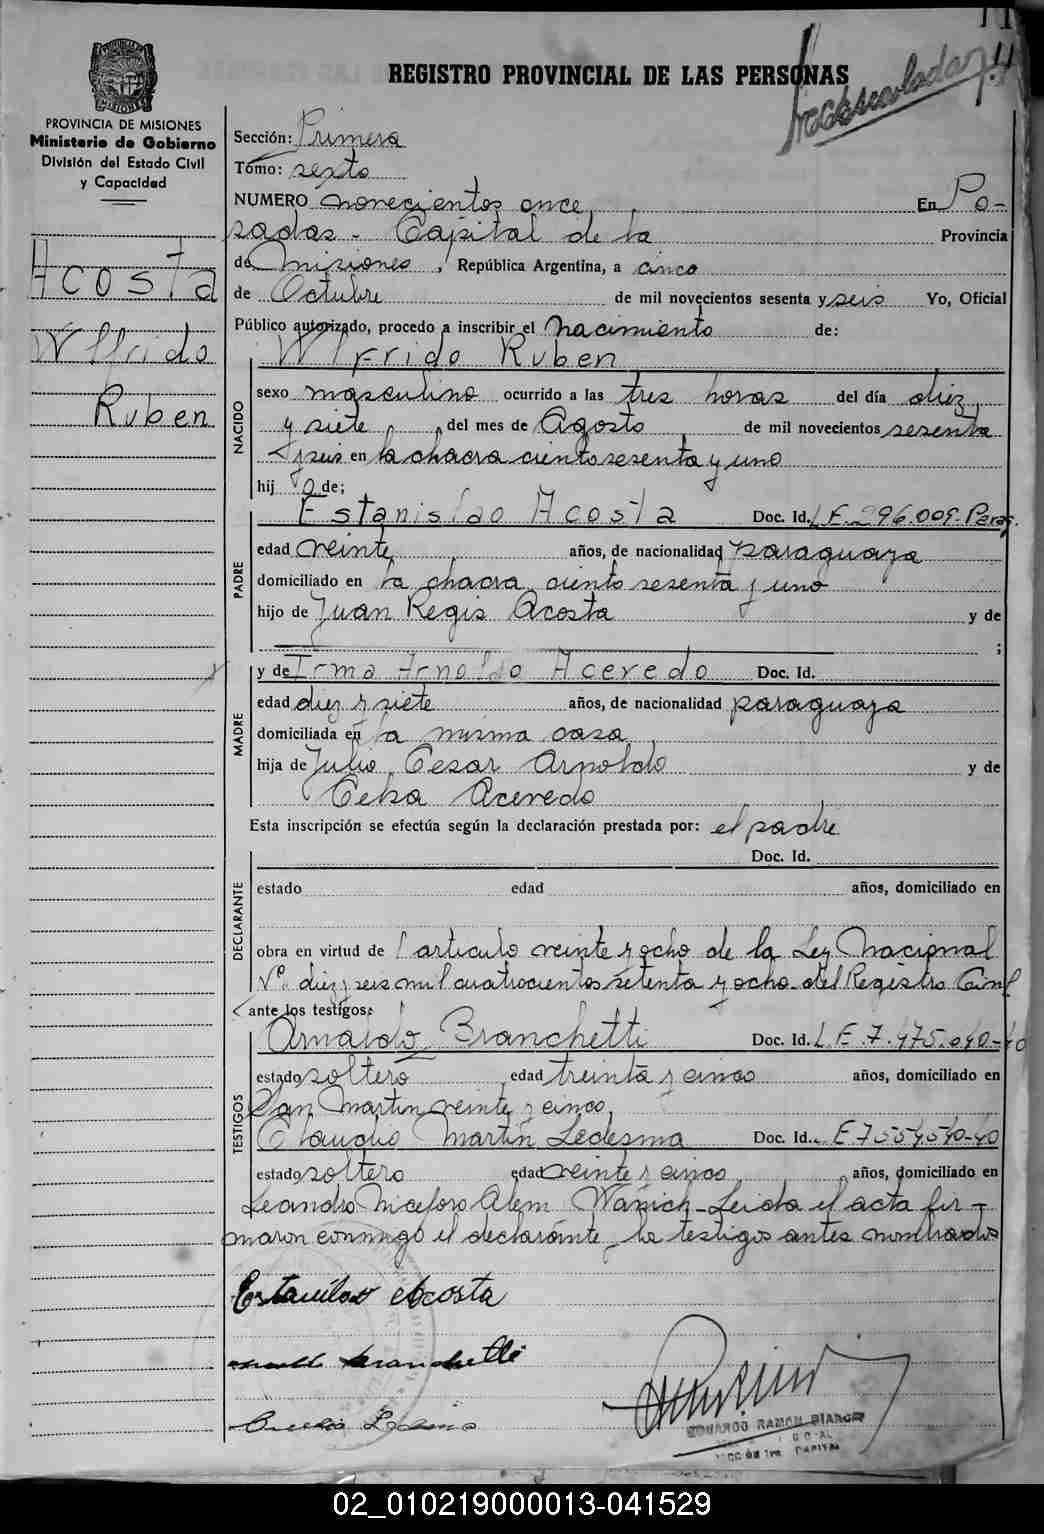 REGISTRO PROVINCIAL DE LAS PERSONAS
PROVINCIA DE MISIONES
Ministerio de Gobierno
División del Estado Civil
y Capacidad
Acosta
Wlfrido
Ruben
Sección: Primera
Tomo: sexto
NUMERO novecientos once En Po-
sadas - Capital de la Provincia
de Misiones, República Argentina, a cinco
de Octubre de mil novecientos sesenta y seis Yo, Oficial
Público autorizado, procedo a inscribir el nacimiento de:
Wlfrido Ruben
NACIDO
sexo masculino ocurrido a las tres horas del día diez
y siete del mes de Agosto de mil novecientos sesenta
y seis en la chacra ciento sesenta y uno
hij o de;
PADRE
Estanislao Acosta Doc. Id. L.E. 296.009. Parag.
edad veinte años, de nacionalidad paraguaya
domiciliado en la chacra ciento sesenta y uno
hijo de Juan Regis Acosta y de
;
MADRE
y de Irma Arnoldo Acevedo Doc. Id.
edad diez y siete años, de nacionalidad paraguaya
domiciliada en la misma casa
hija de Julio Cesar Arnoldo y de
Celsa Acevedo
Esta inscripción se efectúa según la declaración prestada por: el padre
DECLARANTE
Doc. Id.
estado edad años, domiciliado en
obra en virtud de l articulo veinte y ocho de la Ley Nacional
Nº diez y seis mil cuatrocientos setenta y ocho del Registro Civil
ante los testigos:
TESTIGOS
Arnaldo Branchetti Doc. Id. L.E. 7.475.040-40
estado soltero edad treinta y cinco años, domiciliado en
San Martin veinte y cinco
Claudio Martin Ledesma Doc. Id. L.E. 7554540-40
estado soltero edad veinte y cinco años, domiciliado en
Leandro Niceforo Alem Wanich - Leida el acta fir-
maron conmigo el declarante y los testigos antes nombrados
Estanilao Acosta
Branchetti
EDUARDO RAMON BIANCHI
CAPITAL
02_010219000013-041529